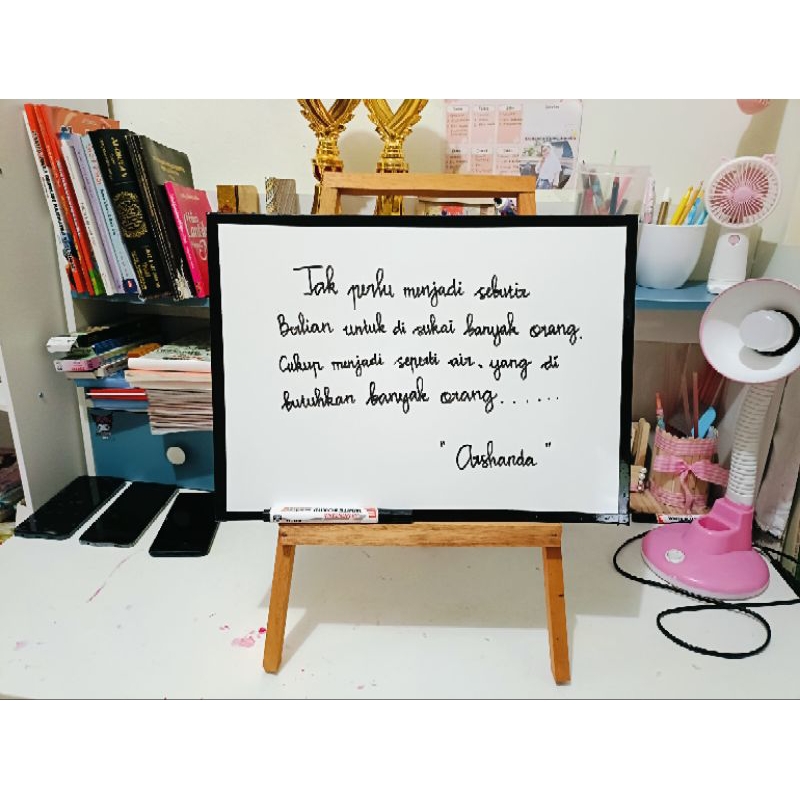 Tak perlu menjadi sebutir
Berlian untuk di sukai banyak orang.
Cukup menjadi seperti air. yang di
butuhkan banyak orang......
"Arshanda"